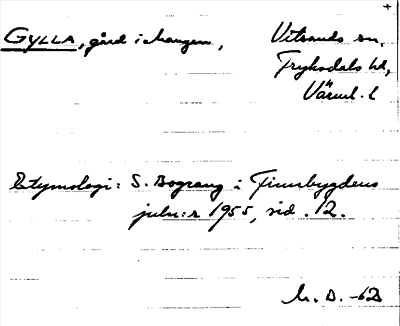 GYLLA, gård i Mangen, Vitsands sn,
Fryksdals hd,
Värml. l
Etymologi: S. Bograng i Finnbygdens
julnr 1955, sid. 12.
M. D. -62